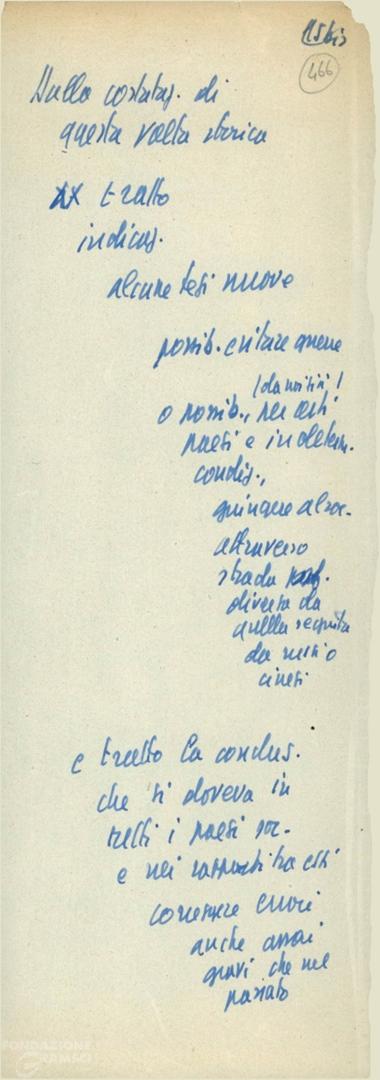 15bis
466
Dalla costataz. di
questa volta storica
XX tratto
indicaz.
alcune tesi nuove
possib. evitare guerre
(da noi più)
o possib., per certi
paesi e in determ.
condiz.,
giungere al soc.
attraverso
strada
diversa da
quella seguita
da russi o
cinesi
e tratto la conclus.
che si doveva in
tutti i paesi soc.
e nei rapporti tra essi
correggere errori
anche assai
gravi che nel
passato
FONDAZIONE
GRAMSCI